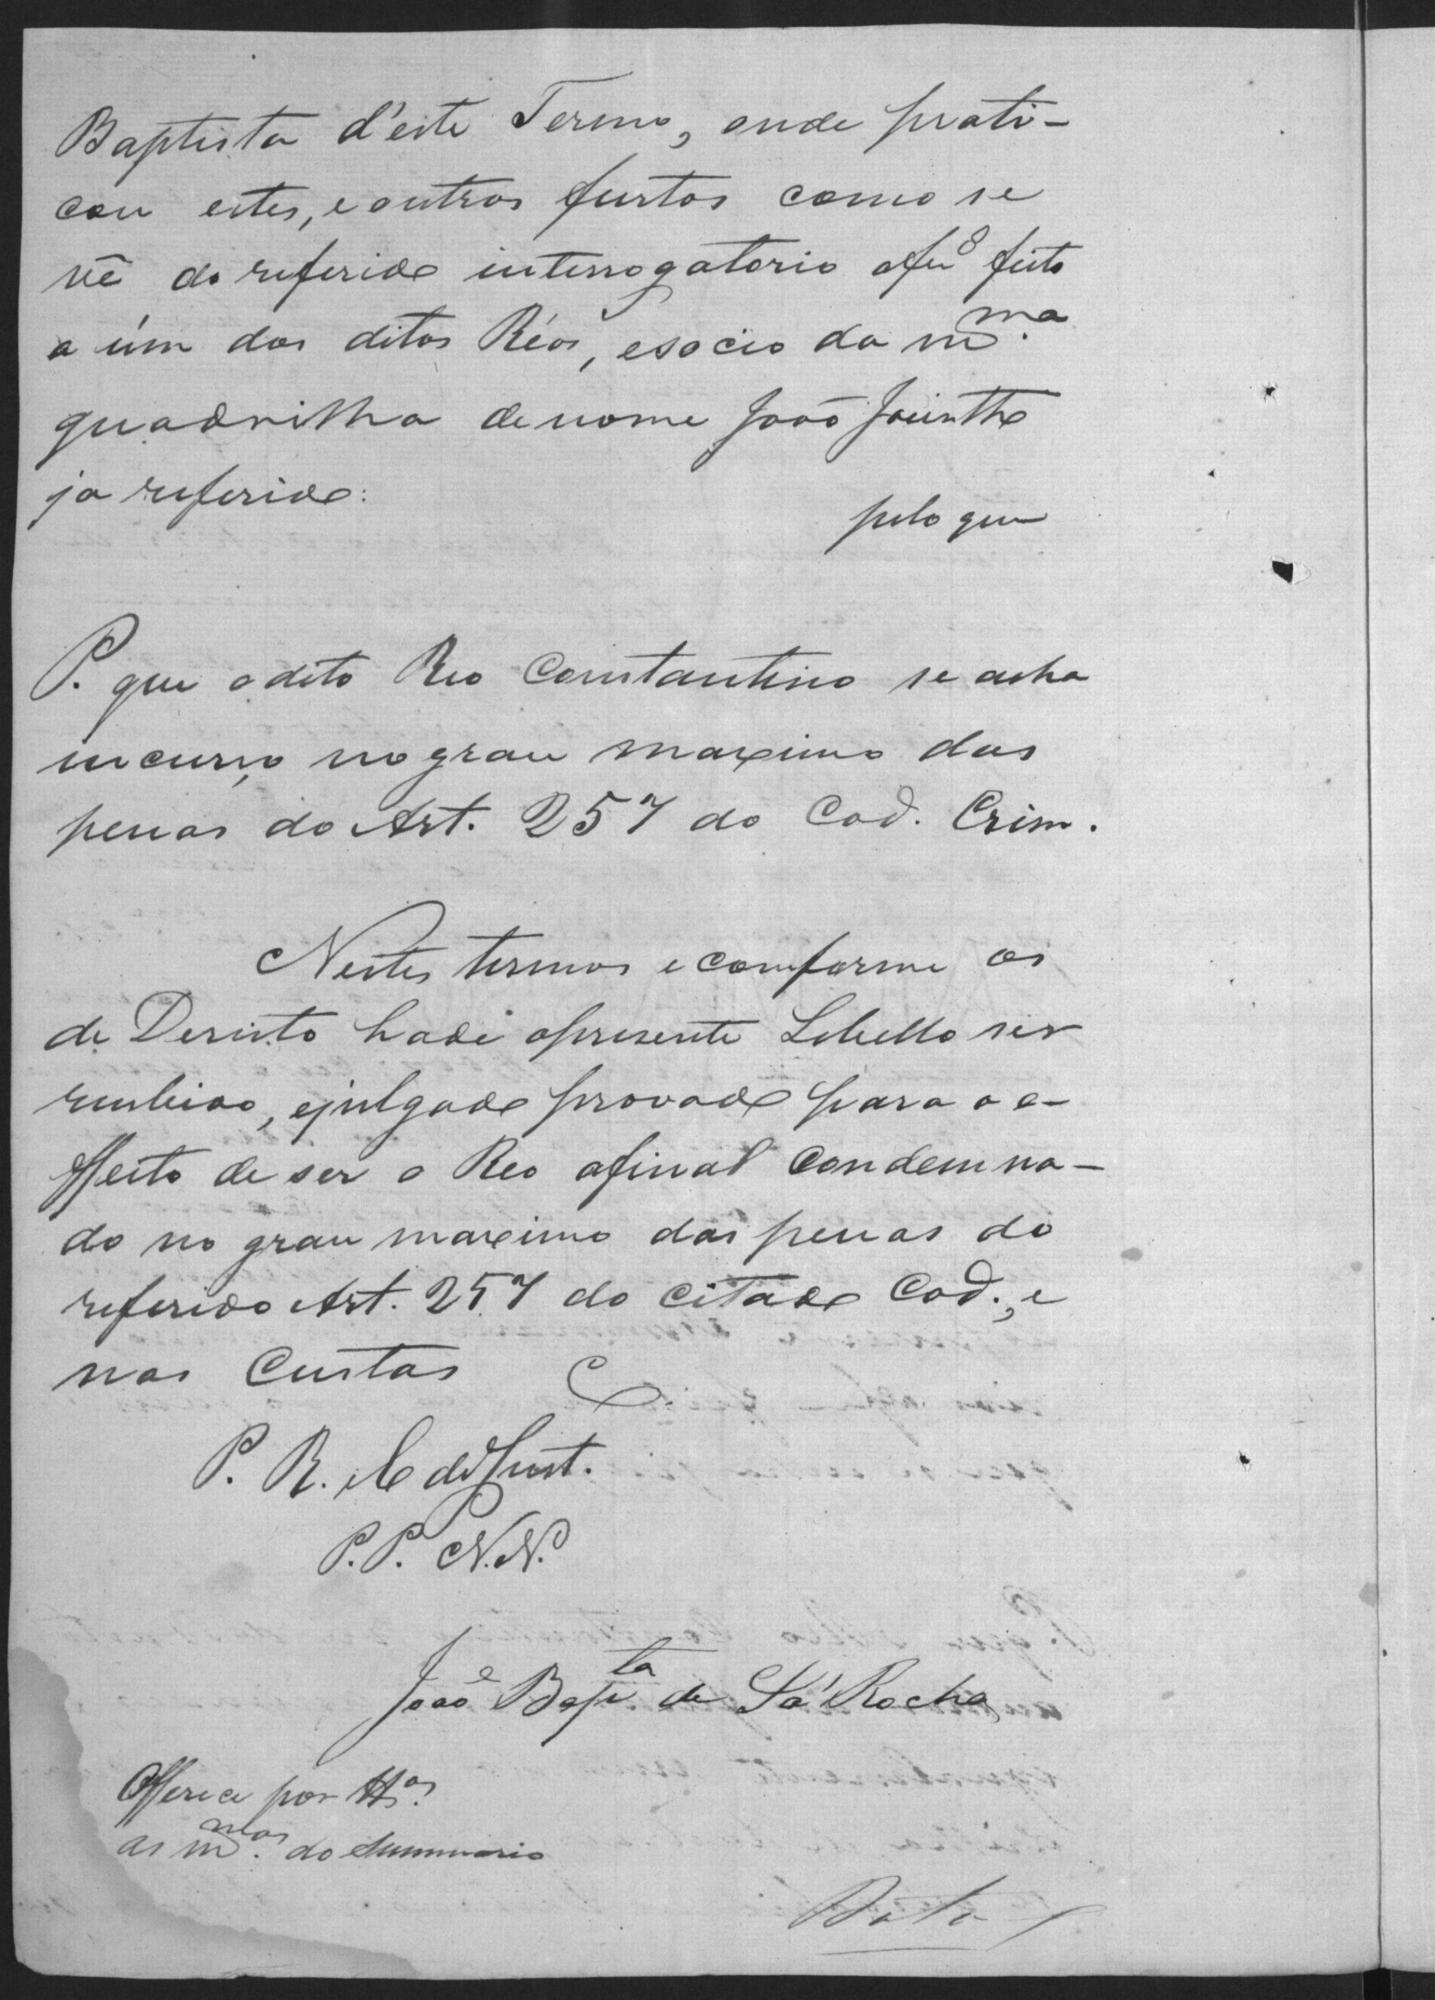 Baptista d'este Termo, onde prati-
cou estes, e outros furtos como se
vê do referido interrogatorio a f. 8 feito
a úm dos ditos Réos, e socio da m.ma
quadrilha de nome João Jacintho
ja referido:
pelo que
P. que o dito Reo Constantino se acha
incurso no grau maximo das
penas do Art. 257 do Cod. Crim.
Nestes termos e comforme os
de Dereito hade o presente Libello ser
recebido, e julgado provado para o e-
ffeito de ser o Reo afinal Condemna-
do no grau maximo das penas do
referido Art. 257 do citado Cod., e
nas Custas
P. R. e C de Just.
P. P. N. N.
João Bap.ta de Sá Rocha
Offerece por tt.as
as m.mas do Summario
Data